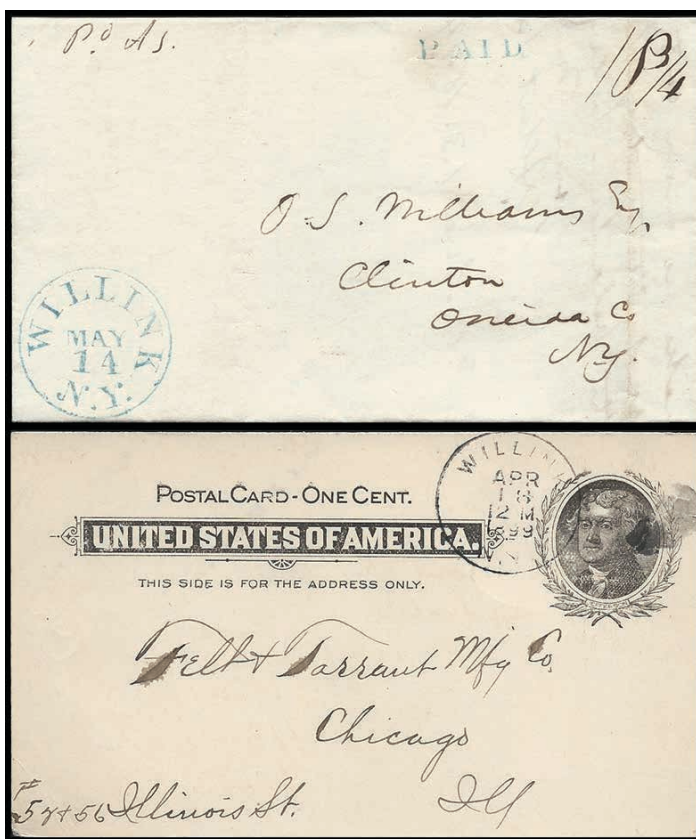 Pd As.
PAID
O. S. Williams Esq
Clinton
Oneida Co
NY.
WILLINK
MAY
14
N.Y.
POSTAL CARD - ONE CENT.
UNITED STATES OF AMERICA.
THIS SIDE IS FOR THE ADDRESS ONLY.
WILLINK
APR
18
12 M
99
Felt & Tarrant Mfg Co,
Chicago
Ill
Illinois St.